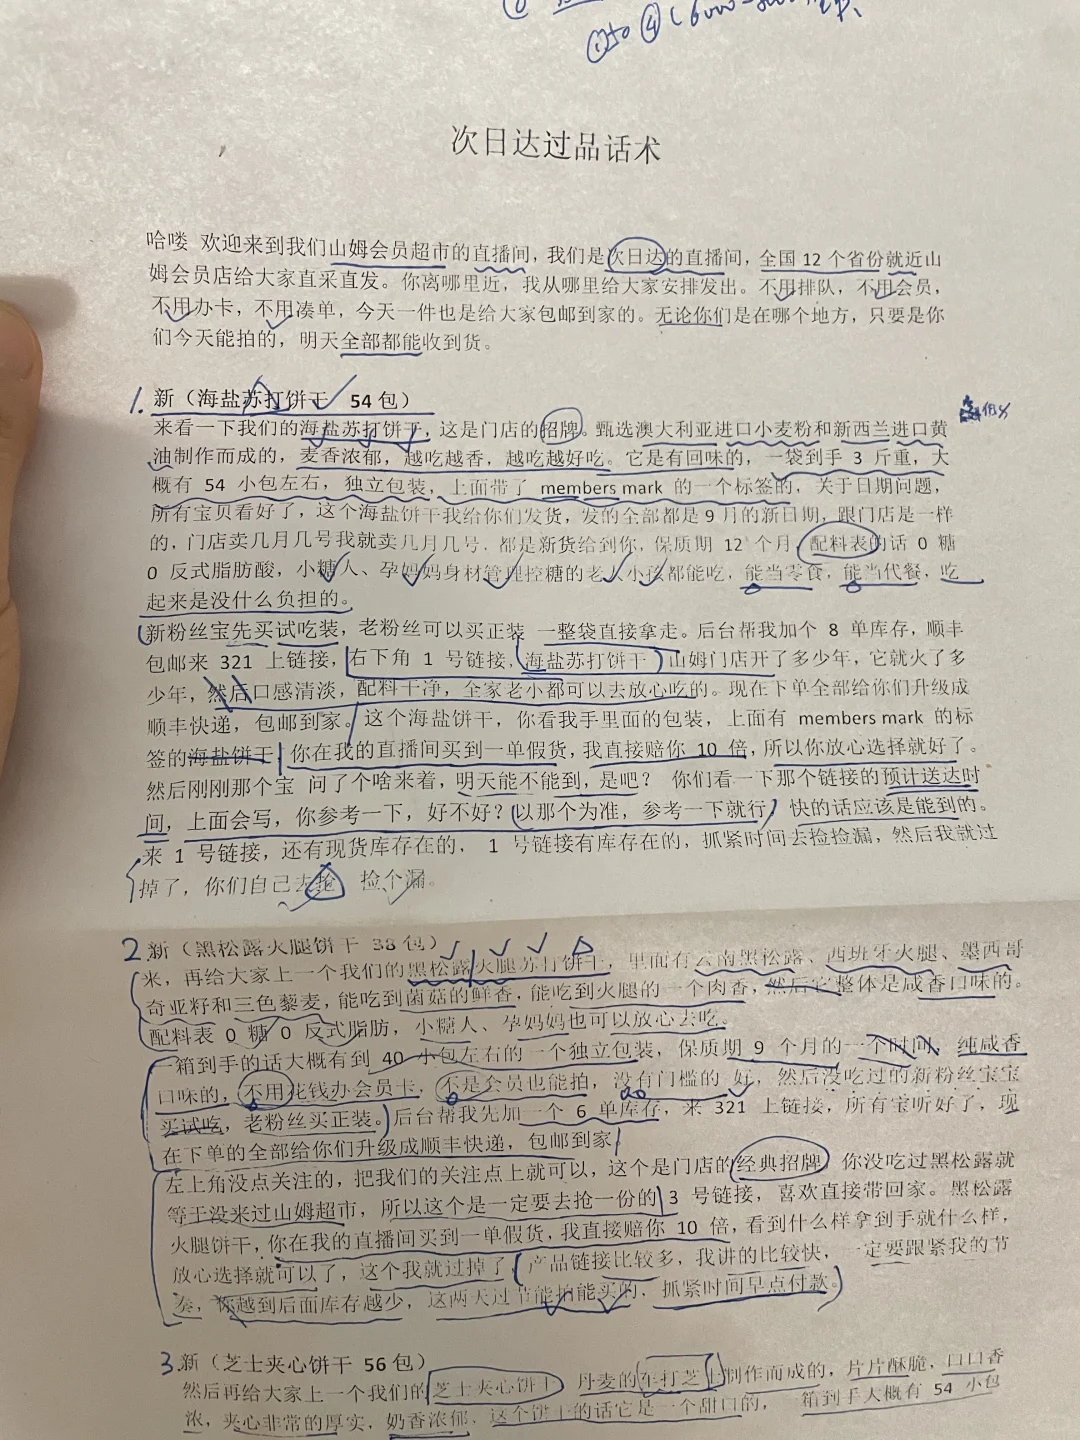 ①50 ④(6000-
次日达过品话术
哈喽 欢迎来到我们山姆会员超市的直播间，我们是次日达的直播间，全国 12 个省份就近山
姆会员店给大家直采直发。你离哪里近，我从哪里给大家安排发出。不用排队，不用会员，
不用办卡，不用凑单，今天一件也是给大家包邮到家的。无论你们是在哪个地方，只要是你
们今天能拍的，明天全部都能收到货。
1. 新（海盐苏打饼干 54 包）
来看一下我们的海盐苏打饼干，这是门店的招牌。甄选澳大利亚进口小麦粉和新西兰进口黄
油制作而成的，麦香浓郁，越吃越香，越吃越好吃。它是有回味的，一袋到手 3 斤重，大
概有 54 小包左右，独立包装，上面带了 members mark 的一个标签的，关于日期问题，
所有宝贝看好了，这个海盐饼干我给你们发货，发的全部都是 9 月的新日期，跟门店是一样
的，门店卖几月几号我就卖几月几号，都是新货给到你，保质期 12 个月，配料表的话 0 糖
0 反式脂肪酸，小糖人、孕妈妈身材管理控糖的老人小孩都能吃，能当零食，能当代餐，吃
起来是没什么负担的。
新粉丝宝先买试吃装，老粉丝可以买正装 一整袋直接拿走。后台帮我加个 8 单库存，顺丰
包邮来 321 上链接，右下角 1 号链接，海盐苏打饼干 山姆门店开了多少年，它就火了多
少年，然后口感清淡，配料干净，全家老小都可以去放心吃的。现在下单全部给你们升级成
顺丰快递，包邮到家。这个海盐饼干，你看我手里面的包装，上面有 members mark 的标
签的海盐饼干 你在我的直播间买到一单假货，我直接赔你 10 倍，所以你放心选择就好了。
然后刚刚那个宝 问了个啥来着，明天能不能到，是吧？ 你们看一下那个链接的预计送达时
间，上面会写，你参考一下，好不好？以那个为准，参考一下就行，快的话应该是能到的。
来 1 号链接，还有现货库存在的， 1 号链接有库存在的，抓紧时间去捡捡漏，然后我就过
掉了，你们自己去抢 捡个漏。
2 新（黑松露火腿饼干 38 包）
来，再给大家上一个我们的黑松露火腿苏打饼干，里面有云南黑松露、西班牙火腿、墨西哥
奇亚籽和三色藜麦，能吃到菌菇的鲜香，能吃到火腿的一个肉香，然后它整体是咸香口味的。
配料表 0 糖 0 反式脂肪，小糖人、孕妈妈也可以放心去吃。
一箱到手的话大概有到 40 小包左右的一个独立包装，保质期 9 个月的一个时间，纯咸香
口味的，不用花钱办会员卡，不是会员也能拍，没有门槛的 好，然后没吃过的新粉丝宝宝
买试吃，老粉丝买正装。后台帮我先加一个 6 单库存，来 321 上链接，所有宝听好了，现
在下单的全部给你们升级成顺丰快递，包邮到家
左上角没点关注的，把我们的关注点上就可以，这个是门店的经典招牌 你没吃过黑松露就
等于没来过山姆超市，所以这个是一定要去抢一份的 3 号链接，喜欢直接带回家。黑松露
火腿饼干，你在我的直播间买到一单假货，我直接赔你 10 倍，看到什么样拿到手就什么样，
放心选择就可以了，这个我就过掉了 产品链接比较多，我讲的比较快，一定要跟紧我的节
奏，你越到后面库存越少，这两天过节能拍能买的，抓紧时间早点付款。
3. 新（芝士夹心饼干 56 包）
然后再给大家上一个我们的芝士夹心饼干 丹麦的车打芝士制作而成的，片片酥脆，口口香
浓，夹心非常的厚实，奶香浓郁，这个饼干的话它是一个甜口的，一箱到手大概有 54 小包